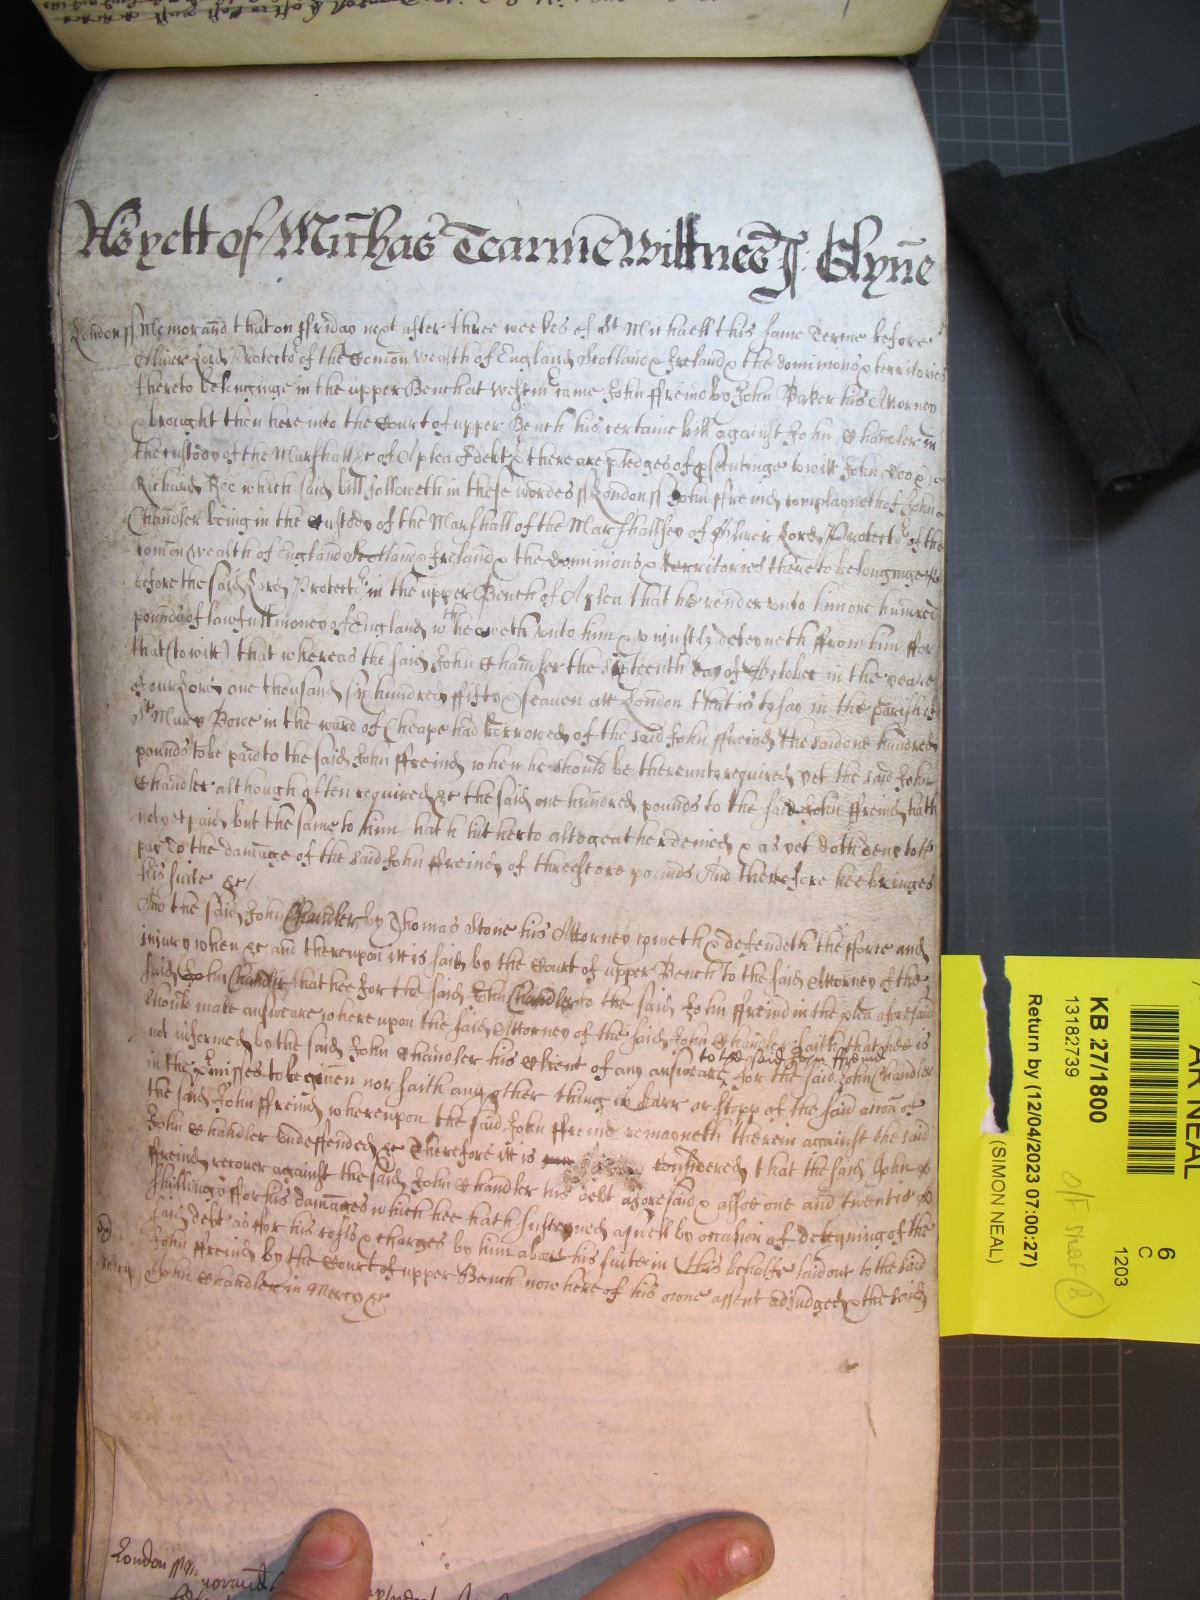 As yett of Michas Tearme Wittnes J: Glynne
London ss Memorand that on ffriday next after three weekes of St Michaell this same Terme before
Oliver Lord Protector of the Comon wealth of England Scotland & Ireland & the dominions & territories
thereto belonginge in the upper Bench at Westm came John ffreind by John Baker his Attorney
& brought then here into the Court of upper Bench his certaine bill against John Chandler in
the custody of the Marshall &c of A plea of debt & there are pledges of prosecutinge to witt John Doo &
Richard Roe which said bill followeth in these wordes ss London ss John ffreind complayneth of John
Chandler being in the Custody of the Marshall of the Marshallsey of Oliver Lord Protector of the
comon wealth of England Scotland & Ireland & the dominions & territories thereto belonginge
before the said Lord Protector in the upper Bench of A plea that he render unto him one hundred
pounds of lawfull money of England wch he oweth unto him & uniustly deteyneth ffrom him ffor
that (to witt) that whereas the said John Chandler the sixteenth day of October in the yeare
of our Lord one thousand six hundred ffifty & seaven att London that is to say in the Parish of
St Mary Bowe in the ward of Cheape had borrowed of the said John ffreind the said one hundred
pounds to be paid to the said John ffreind when he should be thereunto required yet the said John
Chandler although often required &c the said one hundred pounds to the said John ffreind hath
not yet paid but the same to him hath hitherto altogeather denied & as yet doth deny to
pay To the damage of the said John ffreind of threescore pounds And therefore hee bringes
his suite &c/
And the said John Chandler by Thomas Stone his Attorney cometh & defendeth the fforce and
iniury when &c and thereupon itt is said by the Court of upper Bench To the said Attorney of the
said John Chandler that hee for the said John Chandler to the said John ffreind in the plea aforesaid
should make answeare whereupon the said Attorney of the said John Chandler saith that hee is
not informed by the said John Chandler his Client of any answeare for the said John Chandler
to the said John ffreind
in the Pmisses to be given nor saith any other thing in barr or stopp of the said accon of
the said John ffreind whereupon the said John ffreind remayneth therein against the said
John Chandler undeffended &c Therefore itt is considered that the said John
ffreind recover against the said John Chandler his debt aforesaid & alsoe one and twentie
shillings ffor his damages which hee hath susteyned aswell by occasion of deteyning of the
said debt as for his costs & charges by him about his suite in this behalfe laid out to the said
John ffreind by the Court of upper Bench now here of his owne assent adjudged & the said
John Chandler in Mercy &c
mercy
London ss M
KB 27/1800
13182739
Return by (12/04/2023 07:00:27)
(SIMON NEAL)
6
C
1203